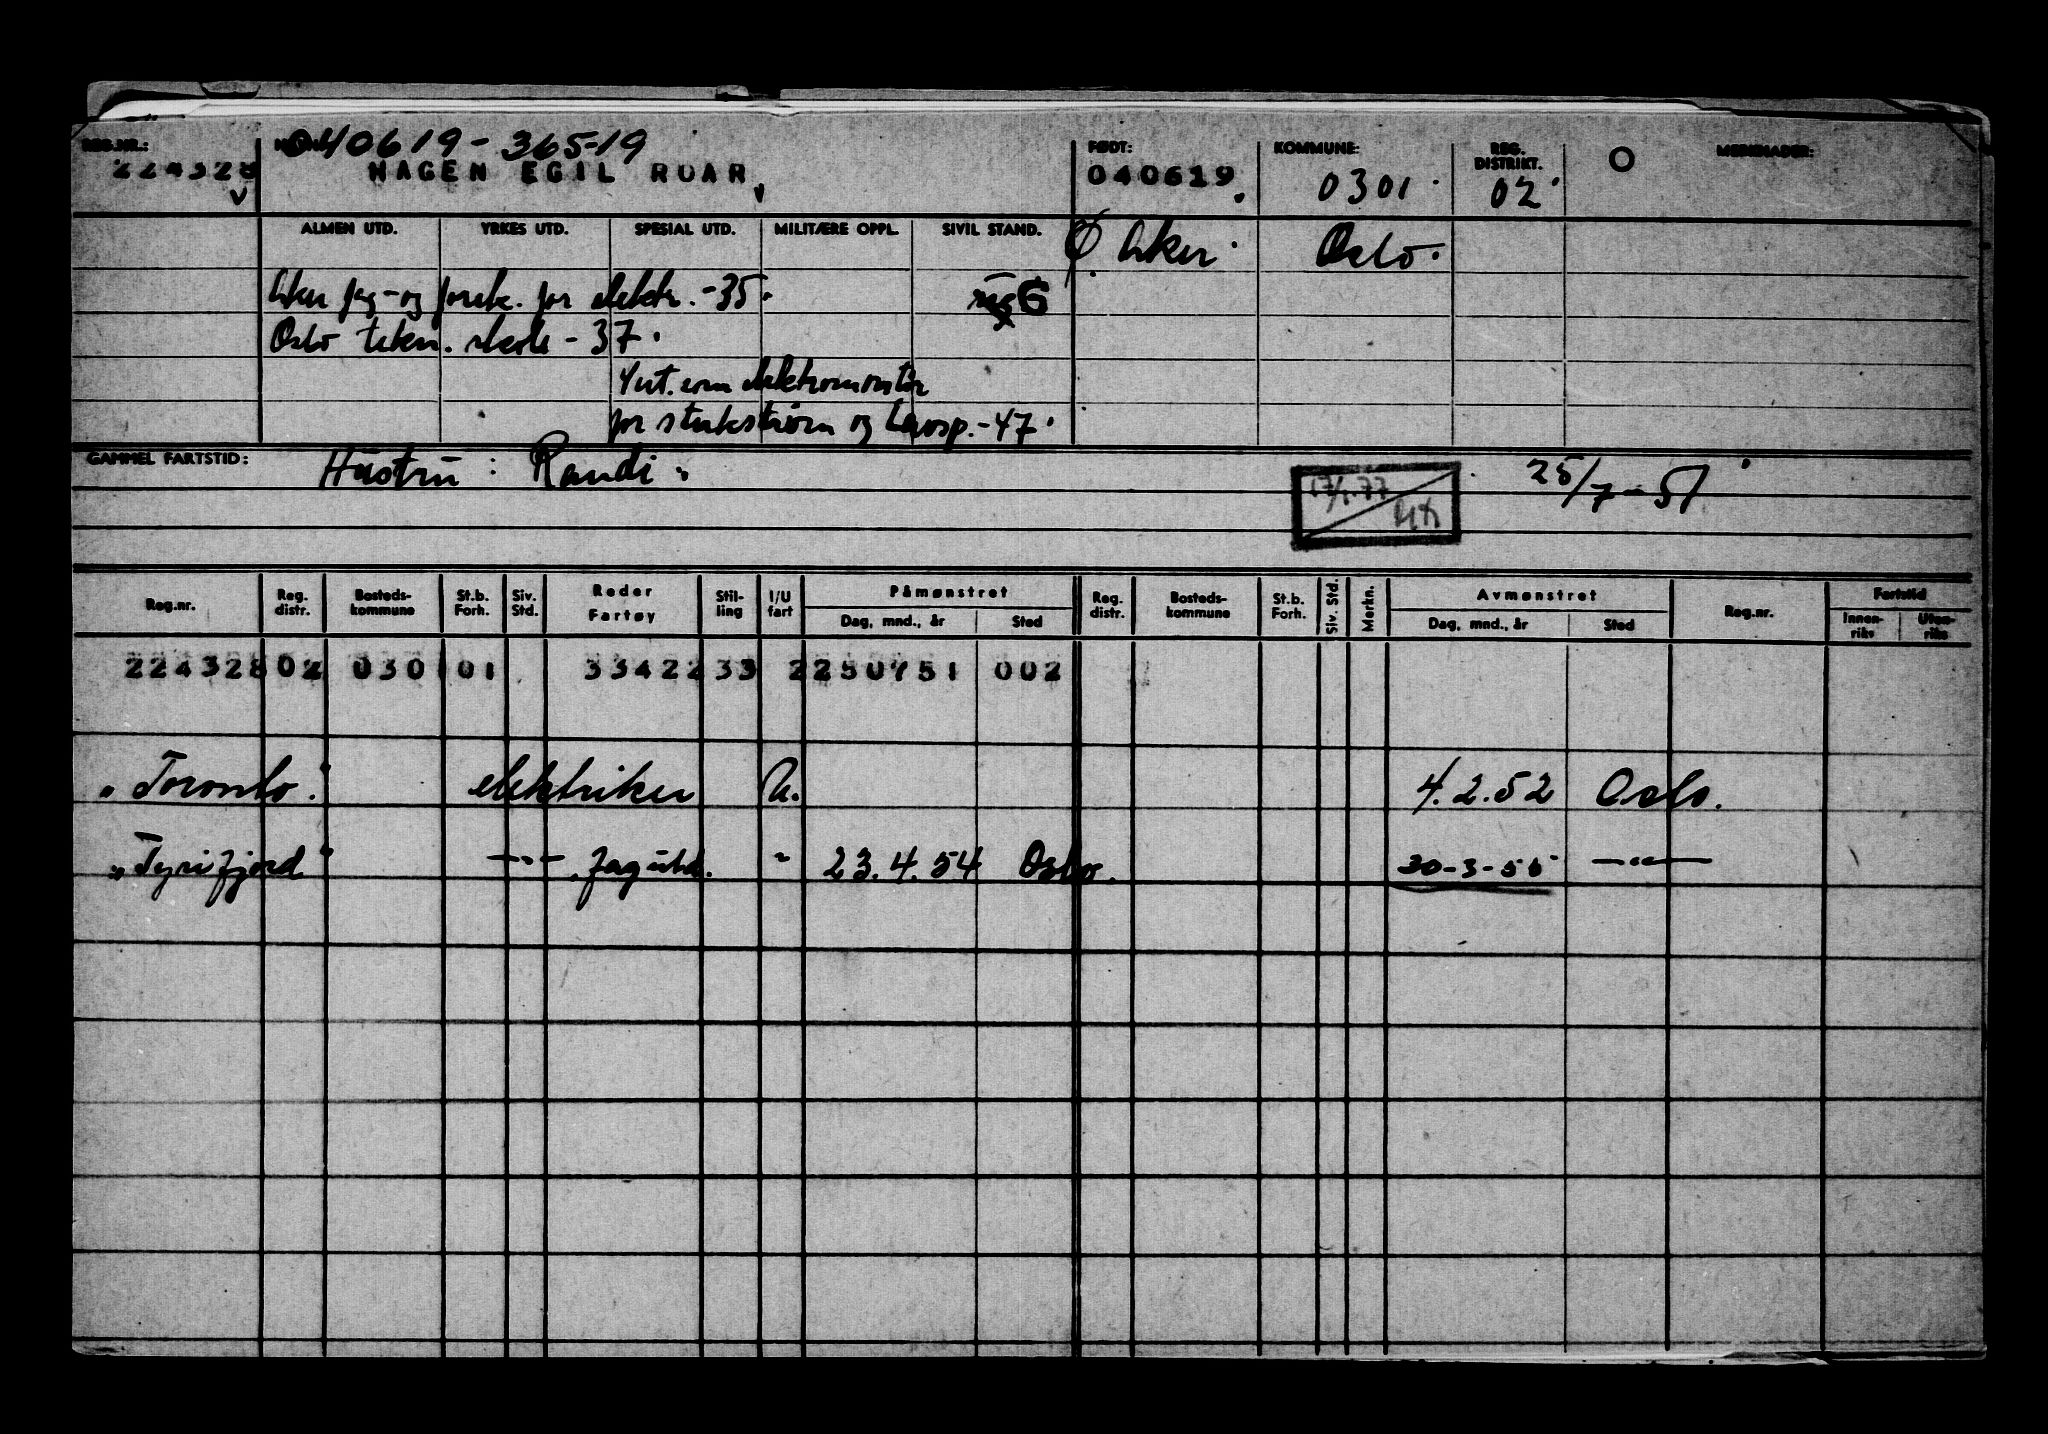 REG.NR.: 040619-36519 FØDT: KOMMUNE: REG. DISTRIKT. MERKNADER:
224328 HAGEN EGIL ROAR 040619. 0301. 02.
ALMEN UTD. YRKES UTD. SPESIAL UTD. MILITÆRE OPPL. SIVIL STAND. Ø Aker. Oslo.
Aker fag-og forsk. for elektr. -35. G
Oslo tekn. skole -37.
som elektromontør
for sterkstrøm og -47.
GAMMEL FARTSTID: Hustru: Randi. 25/7-51
17/1.77
Reg.nr. Reg. distr. Bosteds-kommune St.b. Forh. Siv. Std. Reder Fartøy Stil-ling I/U fart Påmønstret Dag, mnd., år Sted Reg. distr. Bosteds-kommune St.b. Forh. Siv. Std. Merkn. Avmønstret Dag, mnd., år Sted Reg.nr. Fartstid Innen-riks Uten-riks
224328 02 0301 01 33422 33 2 250751 002
"Toronto". elektriker U. 4.2.52 Oslo.
"Tyrifjord" -"- fagutd. " 23.4.54 Oslo. 30-3-55 -"-